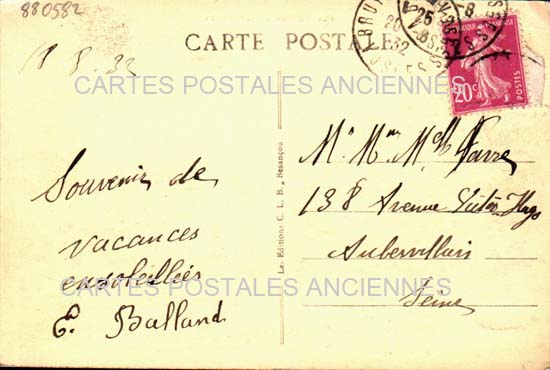 880582
CARTE POSTALE
8 8. 32
CARTES POSTALES ANCIENNES
20c
Souvenir de
vacances
ensoleillées
E. Balland
Les Editions C. L. B., Besançon
Mr Mme Melle Favre
138 Avenue Victor Hugo
Aubervilliers
CARTES POSTALES ANCIENNES
Seine